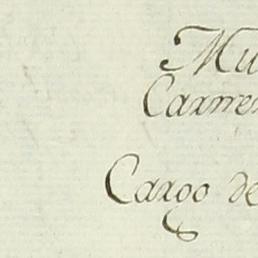 Mu
Carmen
Cargo de